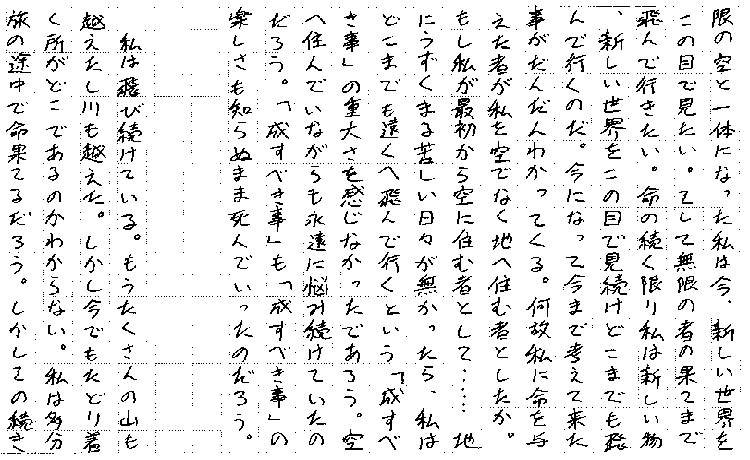 限の空と一体になった私は今、新しい世界を
この目で見たい。そして無限の者の果てまで
飛んで行きたい。命の続く限り私は新しい物
、新しい世界をこの目で見続けどこまでも飛
んで行くのだ。今になって今まで考えて来た
事がだんだんわかってくる。何故私に命を与
えた者が私を空でなく地へ住む者としたか。
もし私が最初から空に住む者として……地
にうずくまる苦しい日々が無かったら、私は
どこまでも遠くへ飛んで行くという「成すべ
き事」の重大さを感じなかったであろう。空
へ住んでいながらも永遠に悩み続けていたの
だろう。「成すべき事」も「成すべき事」の
楽しさも知らぬまま死んでいったのだろう。
私は飛び続けている。もうたくさんの山も
越えたし川も越えた。しかし今でもたどり着
く所がどこであるのかわからない。私は多分
旅の途中で命果てるだろう。しかしその続き